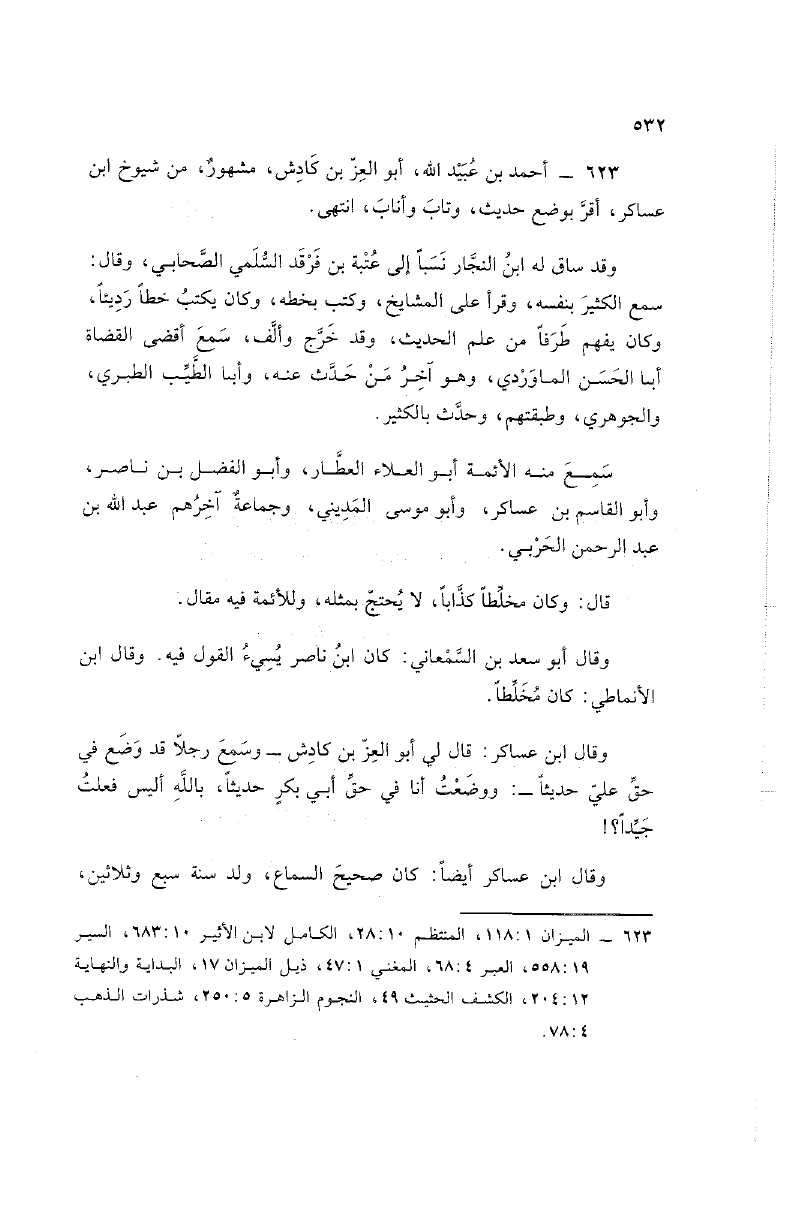 ٥٣٢
٦٢٣ ـ أحمد بن عُبَيْد الله، أبو العِزّ بن كَادِش، مشهورٌ، من شيوخ ابن
عساكر، أقرَّ بوضع حديث، وتابَ وأنابَ، انتهى.
وقد ساق له ابنُ النجَّار نَسَباً إلى عُتْبة بن فَرْقَد السُّلَمي الصَّحابي، وقال:
سمع الكثيرَ بنفسه، وقرأ على المشايخ، وكتب بخطه، وكان يكتبُ خطاً رَدِيئاً،
وكان يفهم طَرَفاً من علم الحديث، وقد خَرَّج وألَّف، سَمِعَ أقضى القضاة
أبا الحَسَن الماوَرْدي، وهو آخِرُ مَنْ حَدَّث عنه، وأبا الطَّيِّب الطبري،
والجوهري، وطبقتهم، وحدَّث بالكثير.
سَمِعَ منه الأئمة أبو العلاء العطَّار، وأبو الفضل بن ناصر،
وأبو القاسم بن عساكر، وأبو موسى المَدِيني، وجماعةٌ آخِرُهم عبد الله بن
عبد الرحمن الحَرْبي.
قال: وكان مخلِّطاً كذَّاباً، لا يُحتجّ بمثله، وللأئمة فيه مقال.
وقال أبو سعد بن السَّمْعاني: كان ابنُ ناصر يُسِيءُ القول فيه. وقال ابن
الأنماطي: كان مُخَلِّطاً.
وقال ابن عساكر: قال لي أبو العِزّ بن كادِش ـ وسَمِعَ رجلاً قد وَضَع في
حقِّ عليّ حديثاً ـ: ووضَعْتُ أنا في حقِّ أبي بكرٍ حديثاً، باللَّهِ أليس فعلتُ
جَيِّداً؟!
وقال ابن عساكر أيضاً: كان صحيحَ السماع، ولد سنة سبع وثلاثين،
٦٢٣ ـ الميزان ١١٨:١، المنتظم ٢٨:١٠، الكامل لابن الأثير ٦٨٣:١٠، السير
٥٥٨:١٩، العبر ٦٨:٤، المغني ٤٧:١، ذيل الميزان ١٧، البداية والنهاية
٢٠٤:١٢، الكشف الحثيث ٤٩، النجوم الزاهرة ٢٥٠:٥، شذرات الذهب
٧٨:٤.